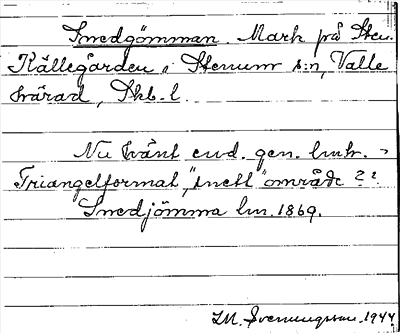 Smedgömman. Mark på Sten.
Källegården i Stenum s:n, Valle
härad, Skb. l.
Nu känt end. gen. lmhr.
Triangelformat, "snett" område ??
Smedjömma lm. 1869.
I.M. Svenungsson. 1944